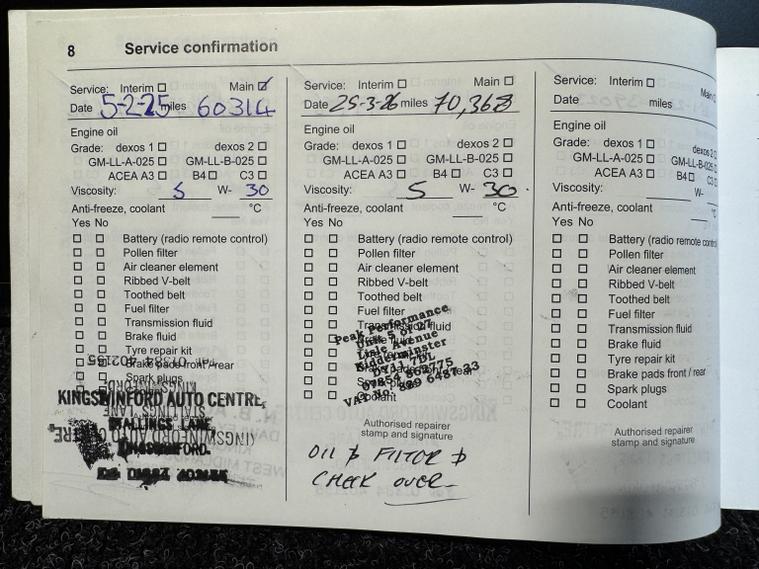 8 Service confirmation
Service: Interim Main
Date 5-2-25 miles 60314
Engine oil
Grade: dexos 1 dexos 2
GM-LL-A-025 GM-LL-B-025
ACEA A3 B4 C3
Viscosity: 5 W- 30
Anti-freeze, coolant °C
Yes No
Battery (radio remote control)
Pollen filter
Air cleaner element
Ribbed V-belt
Toothed belt
Fuel filter
Transmission fluid
Brake fluid
Tyre repair kit
Brake pads front / rear
Spark plugs
KINGSWINFORD AUTO CENTRE,
STALLINGS LANE,
KINGSWINFORD.
Service: Interim Main
Date 25-3-26 miles 70,368
Engine oil
Grade: dexos 1 dexos 2
GM-LL-A-025 GM-LL-B-025
ACEA A3 B4 C3
Viscosity: 5 W- 30
Anti-freeze, coolant °C
Yes No
Battery (radio remote control)
Pollen filter
Air cleaner element
Ribbed V-belt
Toothed belt
Fuel filter
Transmission fluid
Peak Performance
Unit 5 of 27
Lisle Avenue
Kidderminster
DY11 7DL
Coolant
Authorised repairer
stamp and signature
OIL & FILTOR &
CHECK OVER
Service: Interim Main
Date miles
Engine oil
Grade: dexos 1 dexos 2
GM-LL-A-025 GM-LL-B-025
ACEA A3 B4 C3
Viscosity: W-
Anti-freeze, coolant °C
Yes No
Battery (radio remote control)
Pollen filter
Air cleaner element
Ribbed V-belt
Toothed belt
Fuel filter
Transmission fluid
Brake fluid
Tyre repair kit
Brake pads front / rear
Spark plugs
Coolant
Authorised repairer
stamp and signature